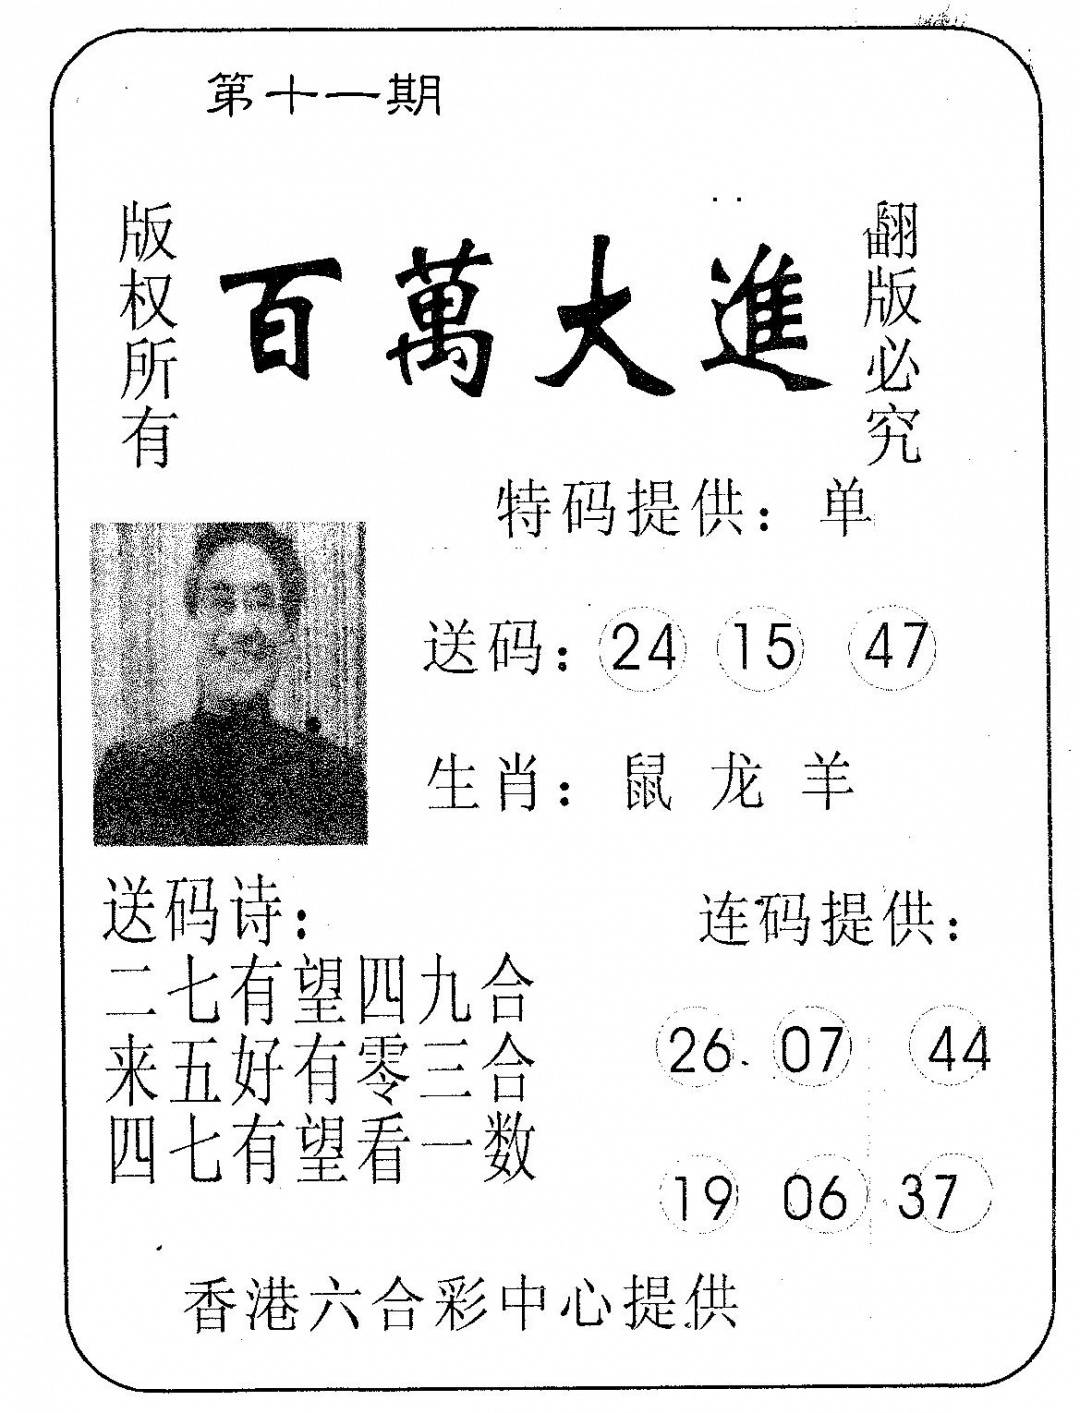 第十一期
版权所有
百萬大進
翻版必究
特码提供：单
送码：24 15 47
生肖：鼠 龙 羊
送码诗：
二七有望四九合
来五好有零三合
四七有望看一数
连码提供：
26 07 44
19 06 37
香港六合彩中心提供